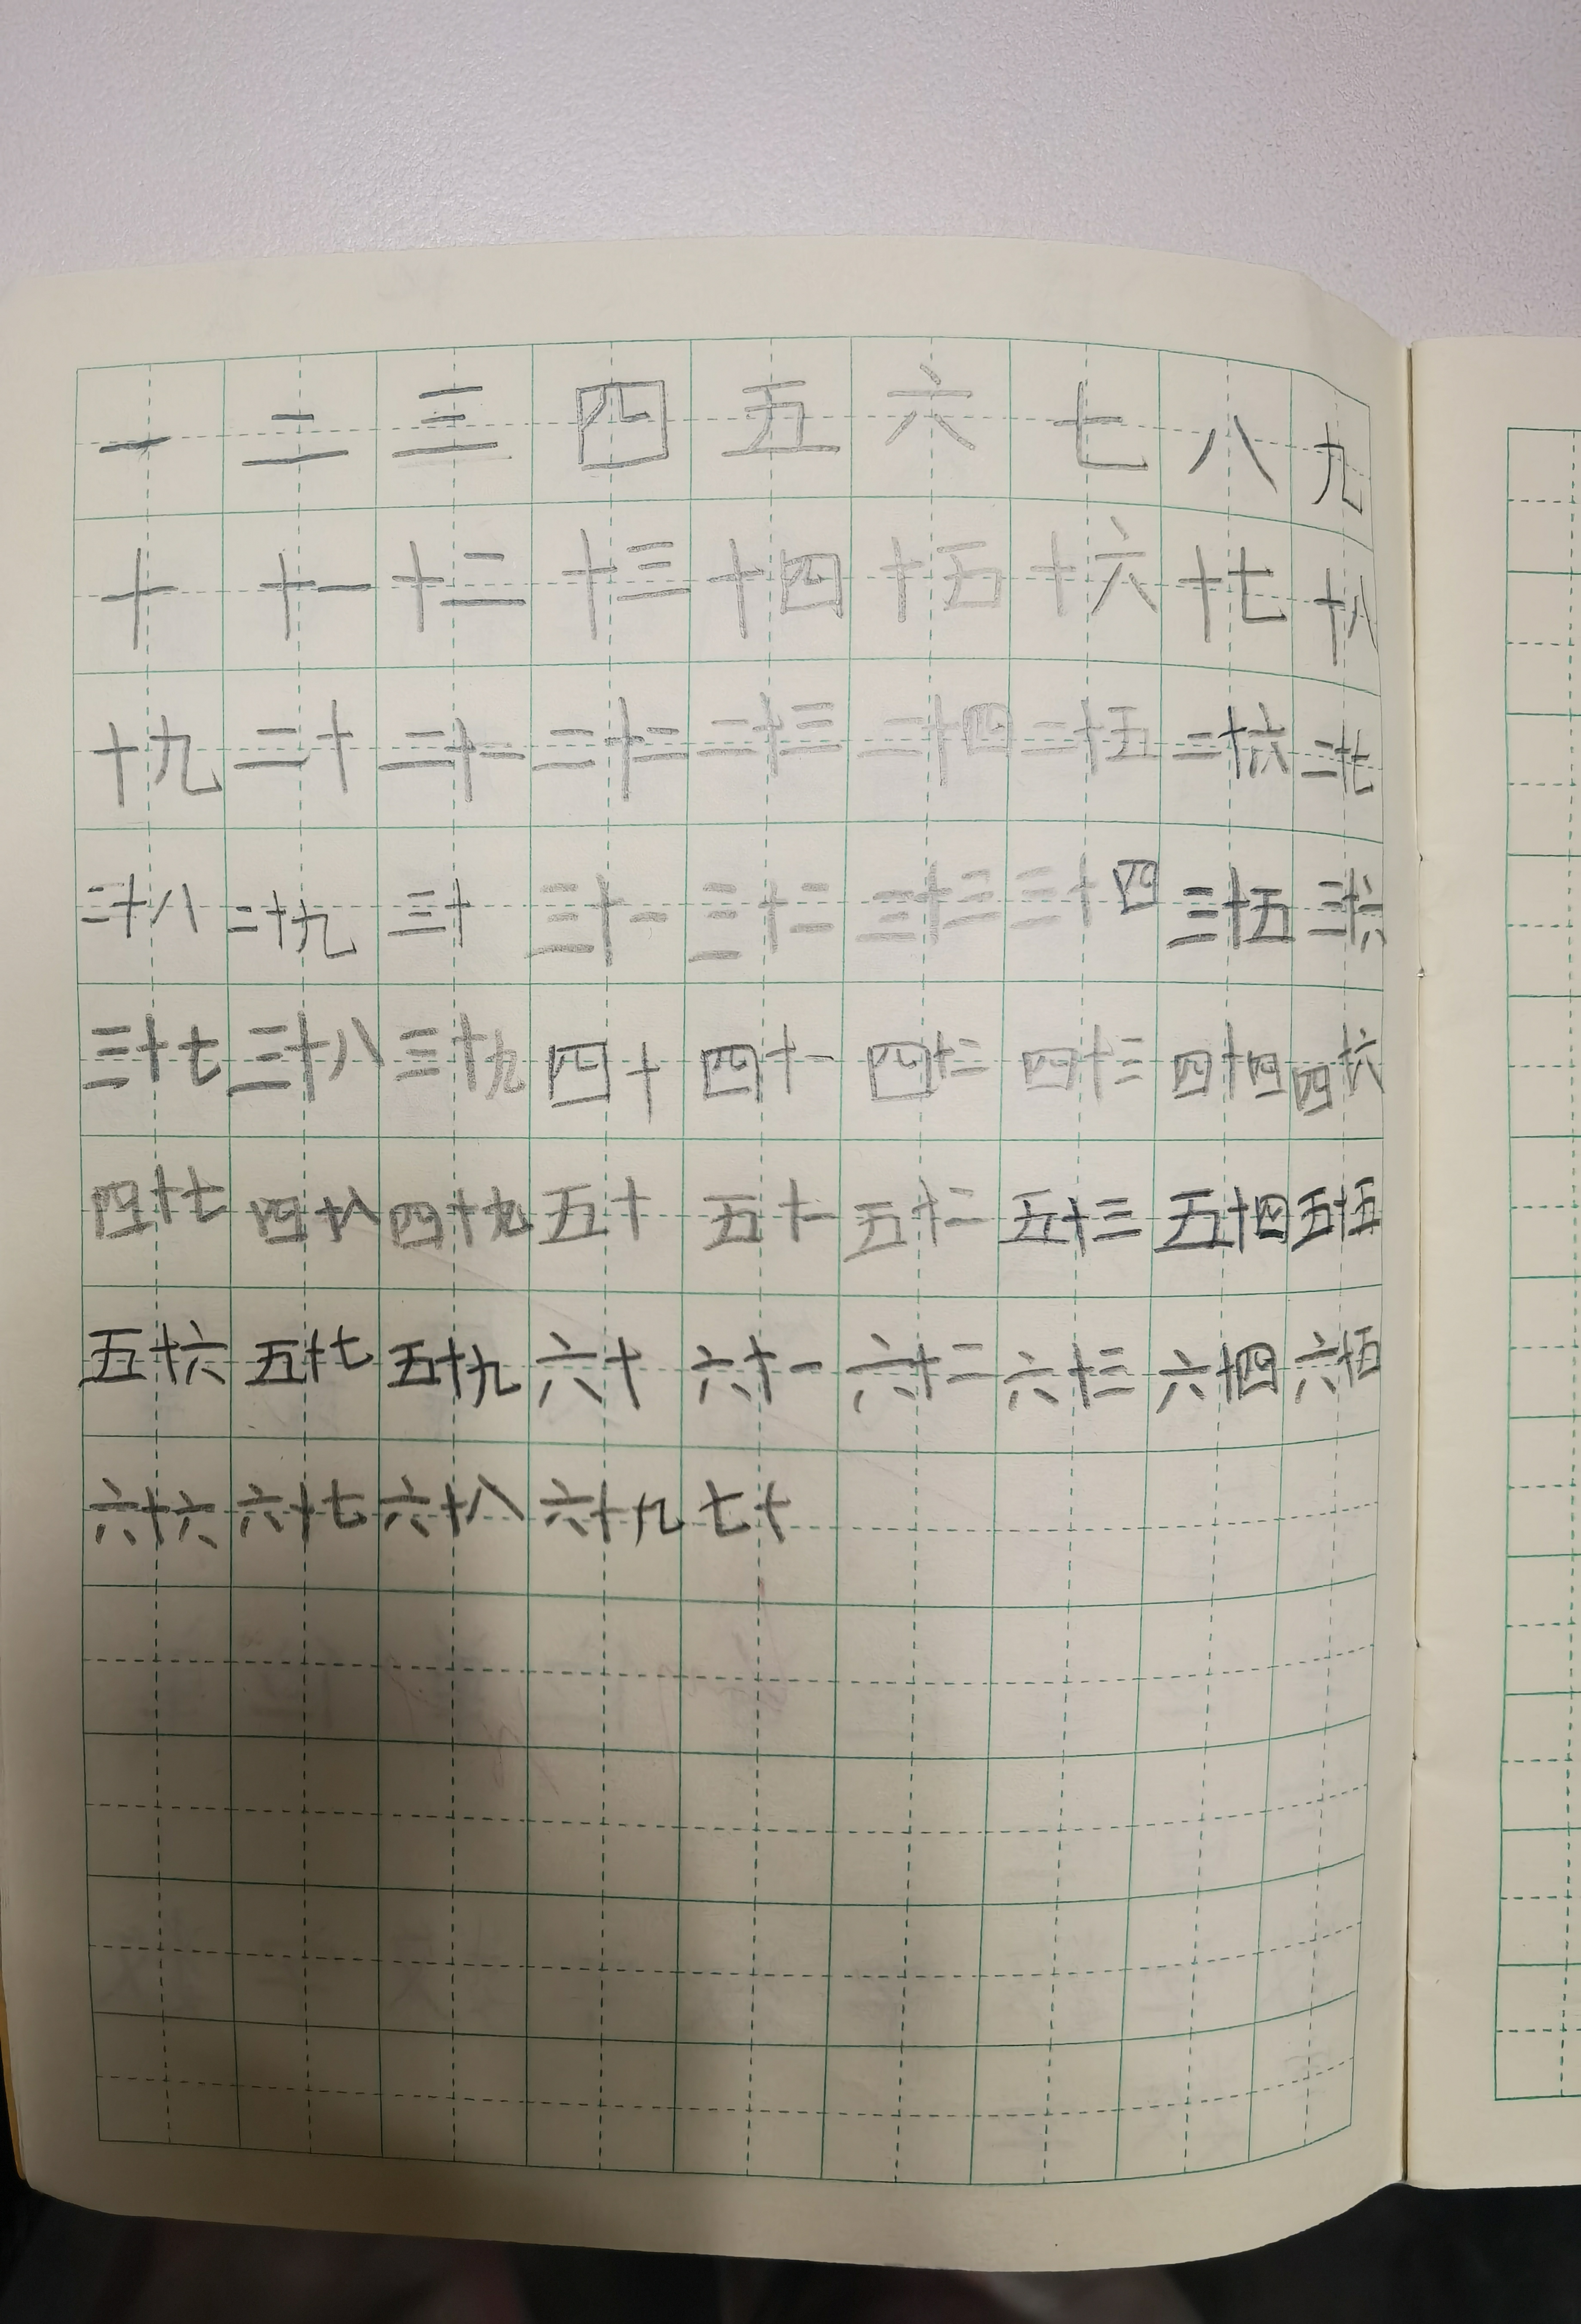 一 二 三 四 五 六 七 八 九
十 十一 十二 十三 十四 十五 十六 十七 十八
十九 二十 二十一 二十二 二十三 二十四 二十五 二十六 二十七
二十八 二十九 三十 三十一 三十二 三十三 三十四 三十五 三十六
三十七 三十八 三十九 四十 四十一 四十二 四十三 四十四 四十六
四十七 四十八 四十九 五十 五十一 五十二 五十三 五十四 五十五
五十六 五十七 五十九 六十 六十一 六十二 六十三 六十四 六十五
六十六 六十七 六十八 六十九 七十